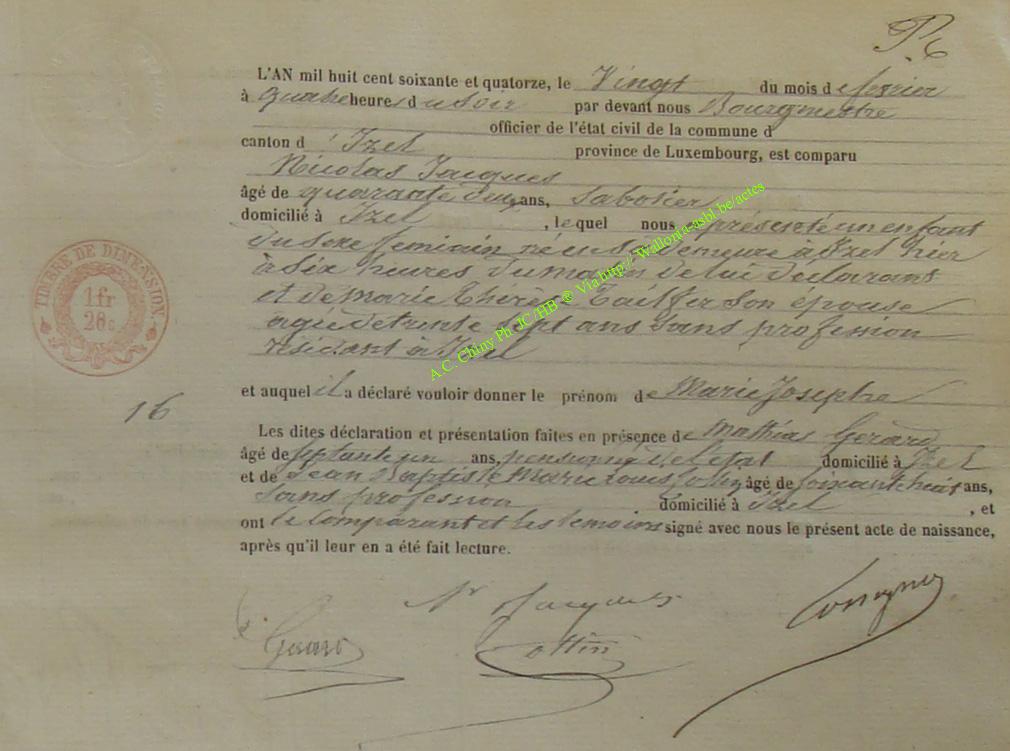 P. 6
L'AN mil huit cent soixante et quatorze, le Vingt du mois de fevrier
à quatre heures du soir par devant nous Bourgmestre
officier de l'état civil de la commune d
canton d'Izel province de Luxembourg, est comparu
Nicolas Jacques
âgé de quarante deux ans, sabotier
domicilié à Izel, lequel nous a présenté un enfant
du sexe feminin né en sa demeure à Izel hier
à six heures du matin de lui declarant
et de Marie Thérèse Tailfer son épouse
agée de trente sept ans sans profession
résidant à Izel
et auquel il a déclaré vouloir donner le prénom de Marie Josephe
16
Les dites déclaration et présentation faites en présence de Mathias Gerard
âgé de septante un ans, pensionné de l'état domicilié à Izel
et de Jean Baptiste Marie Louis âgé de soixante huit ans,
sans profession domicilié à Izel, et
ont le comparant et les temoins signé avec nous le présent acte de naissance,
après qu'il leur en a été fait lecture.
N Jacques
Gerard
TIMBRE DE DIMENSION.
1fr
20c
A.C. Chiny Ph JC/HB ® Via http:// Wallonia-asbl.be/actes